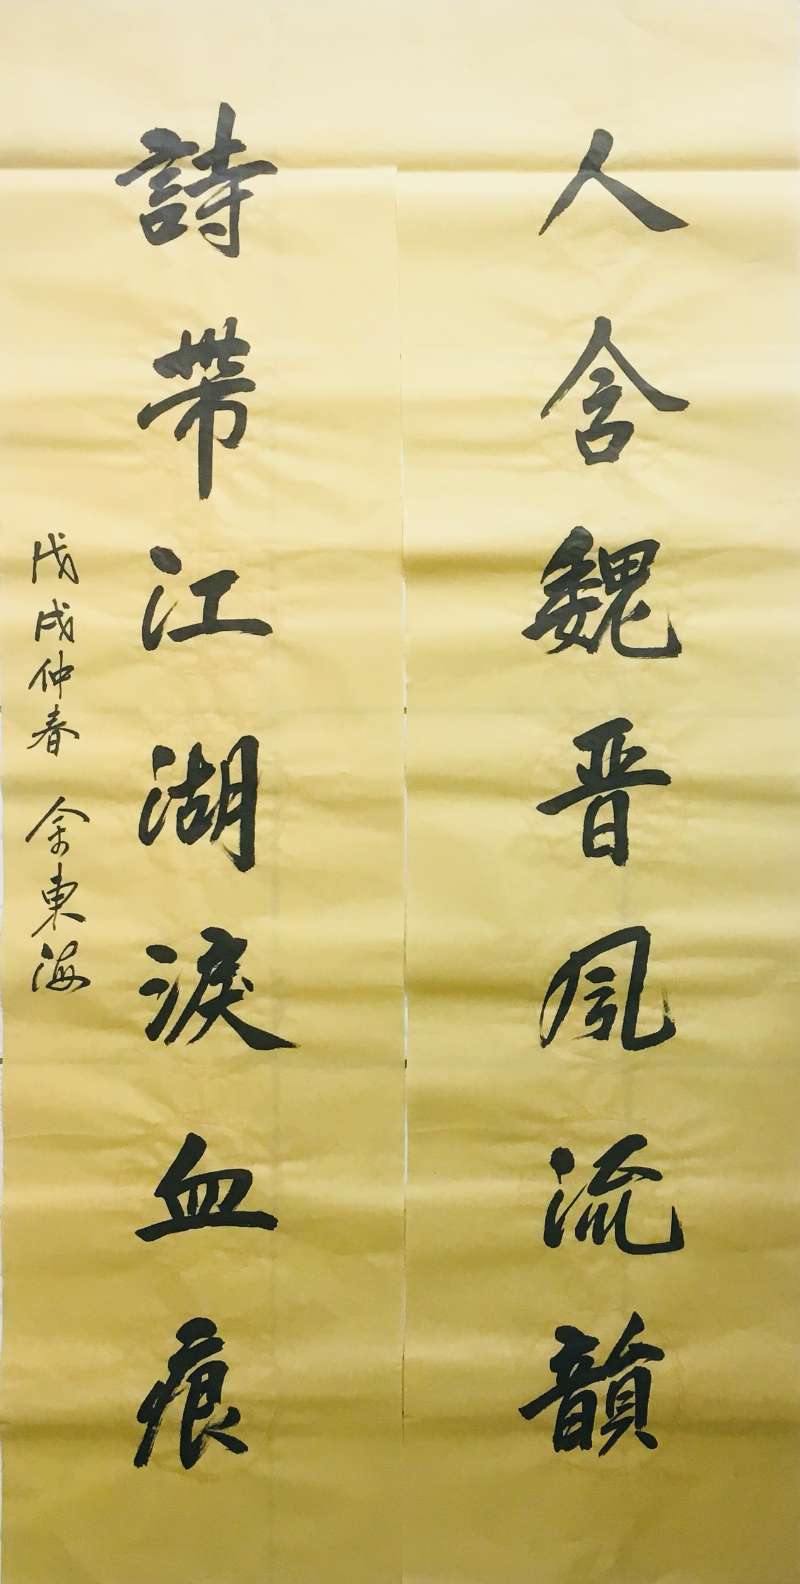 人含魏晋風流韻
詩帶江湖淚血痕
戊戌仲春 余東海